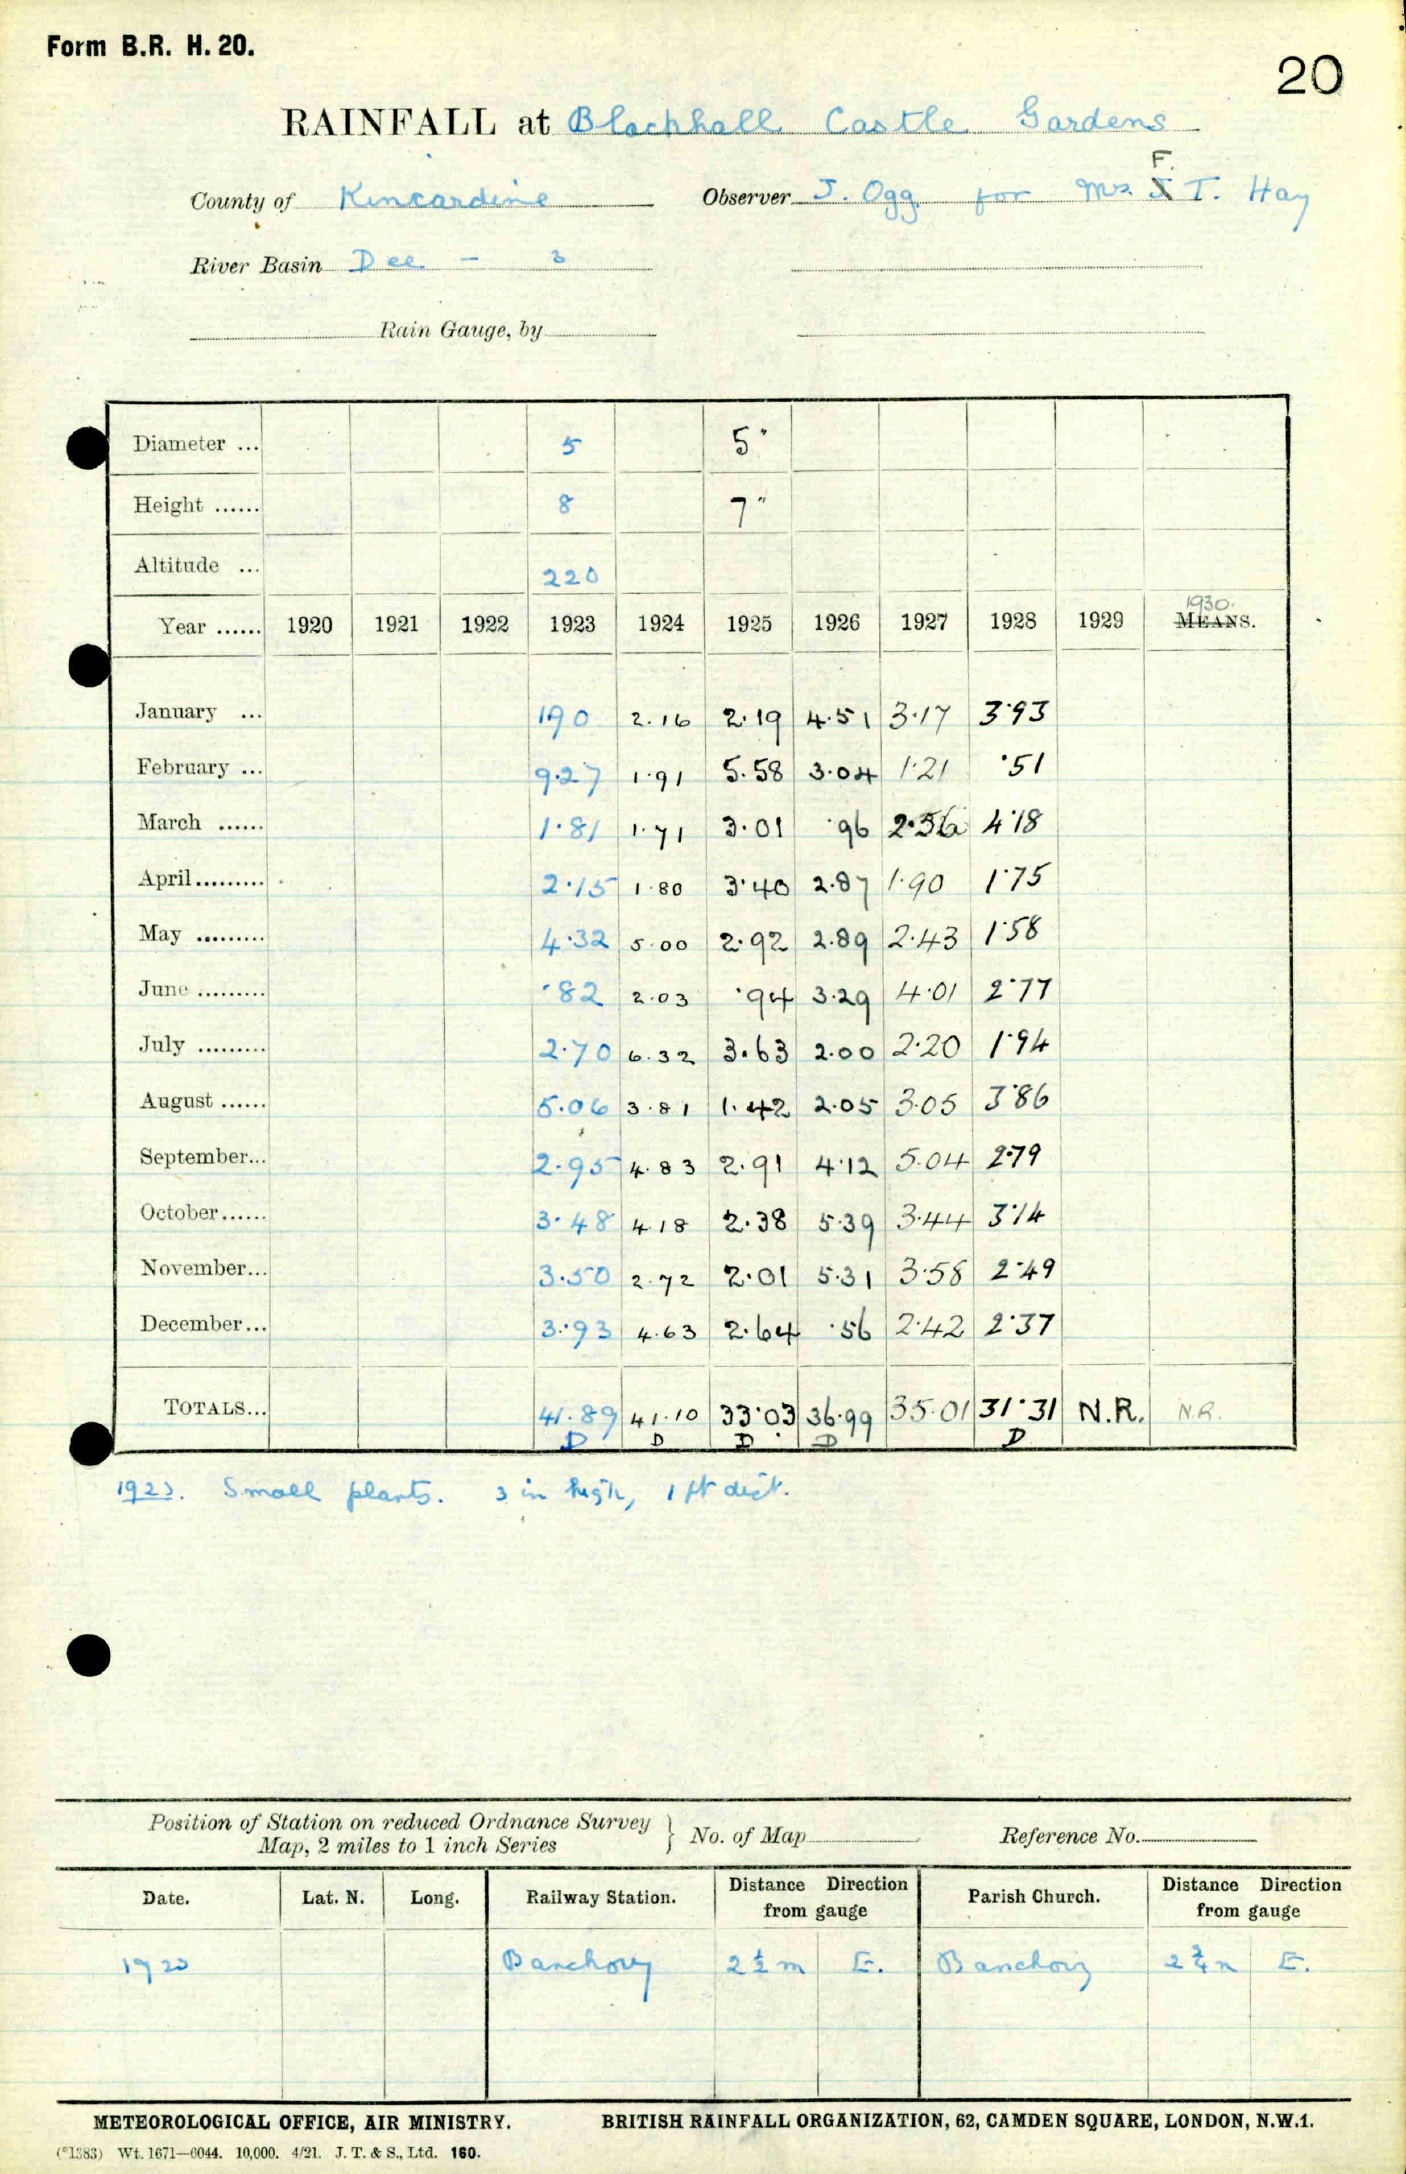 Form B.R. H. 20.
20
RAINFALL at Blackhall Castle Gardens
F.
County of Kincardine Observer J. Ogg for Mr. J T. Hay
River Basin Dee - 3
Rain Gauge, by
Diameter ... 5 5"
Height ...... 8 7"
Altitude ... 220
1930.
Year ...... 1920 1921 1922 1923 1924 1925 1926 1927 1928 1929 MEANS.
January ... 190 2.16 2.19 4.51 3.17 3.93
February ... 9.27 1.91 5.58 3.04 1.21 .51
March ...... 1.81 1.71 3.01 .96 2.56 4.18
April......... 2.15 1.80 3.40 2.87 1.90 1.75
May ......... 4.32 5.00 2.92 2.89 2.43 1.58
June ......... .82 2.03 .94 3.29 4.01 2.77
July ......... 2.70 6.32 3.63 2.00 2.20 1.94
August ...... 5.06 3.81 1.42 2.05 3.05 3.86
September... 2.95 4.83 2.91 4.12 5.04 2.79
October...... 3.48 4.18 2.38 5.39 3.44 3.14
November... 3.50 2.72 2.01 5.31 3.58 2.49
December... 3.93 4.63 2.64 .56 2.42 2.37
TOTALS... 41.89 41.10 33.03 36.99 35.01 31.31 N.R. N.R.
D D D D D
1923. Small plants. 3 in high, 1 ft dist.
Position of Station on reduced Ordnance Survey
Map, 2 miles to 1 inch Series } No. of Map Reference No.
Date. Lat. N. Long. Railway Station. Distance Direction from gauge Parish Church. Distance Direction from gauge
1923 Banchory 2 1/2 m E. Banchory 2 3/4 m E.
METEOROLOGICAL OFFICE, AIR MINISTRY. BRITISH RAINFALL ORGANIZATION, 62, CAMDEN SQUARE, LONDON, N.W.1.
(*1383) Wt. 1671—6044. 10,000. 4/21. J. T. & S., Ltd. 160.